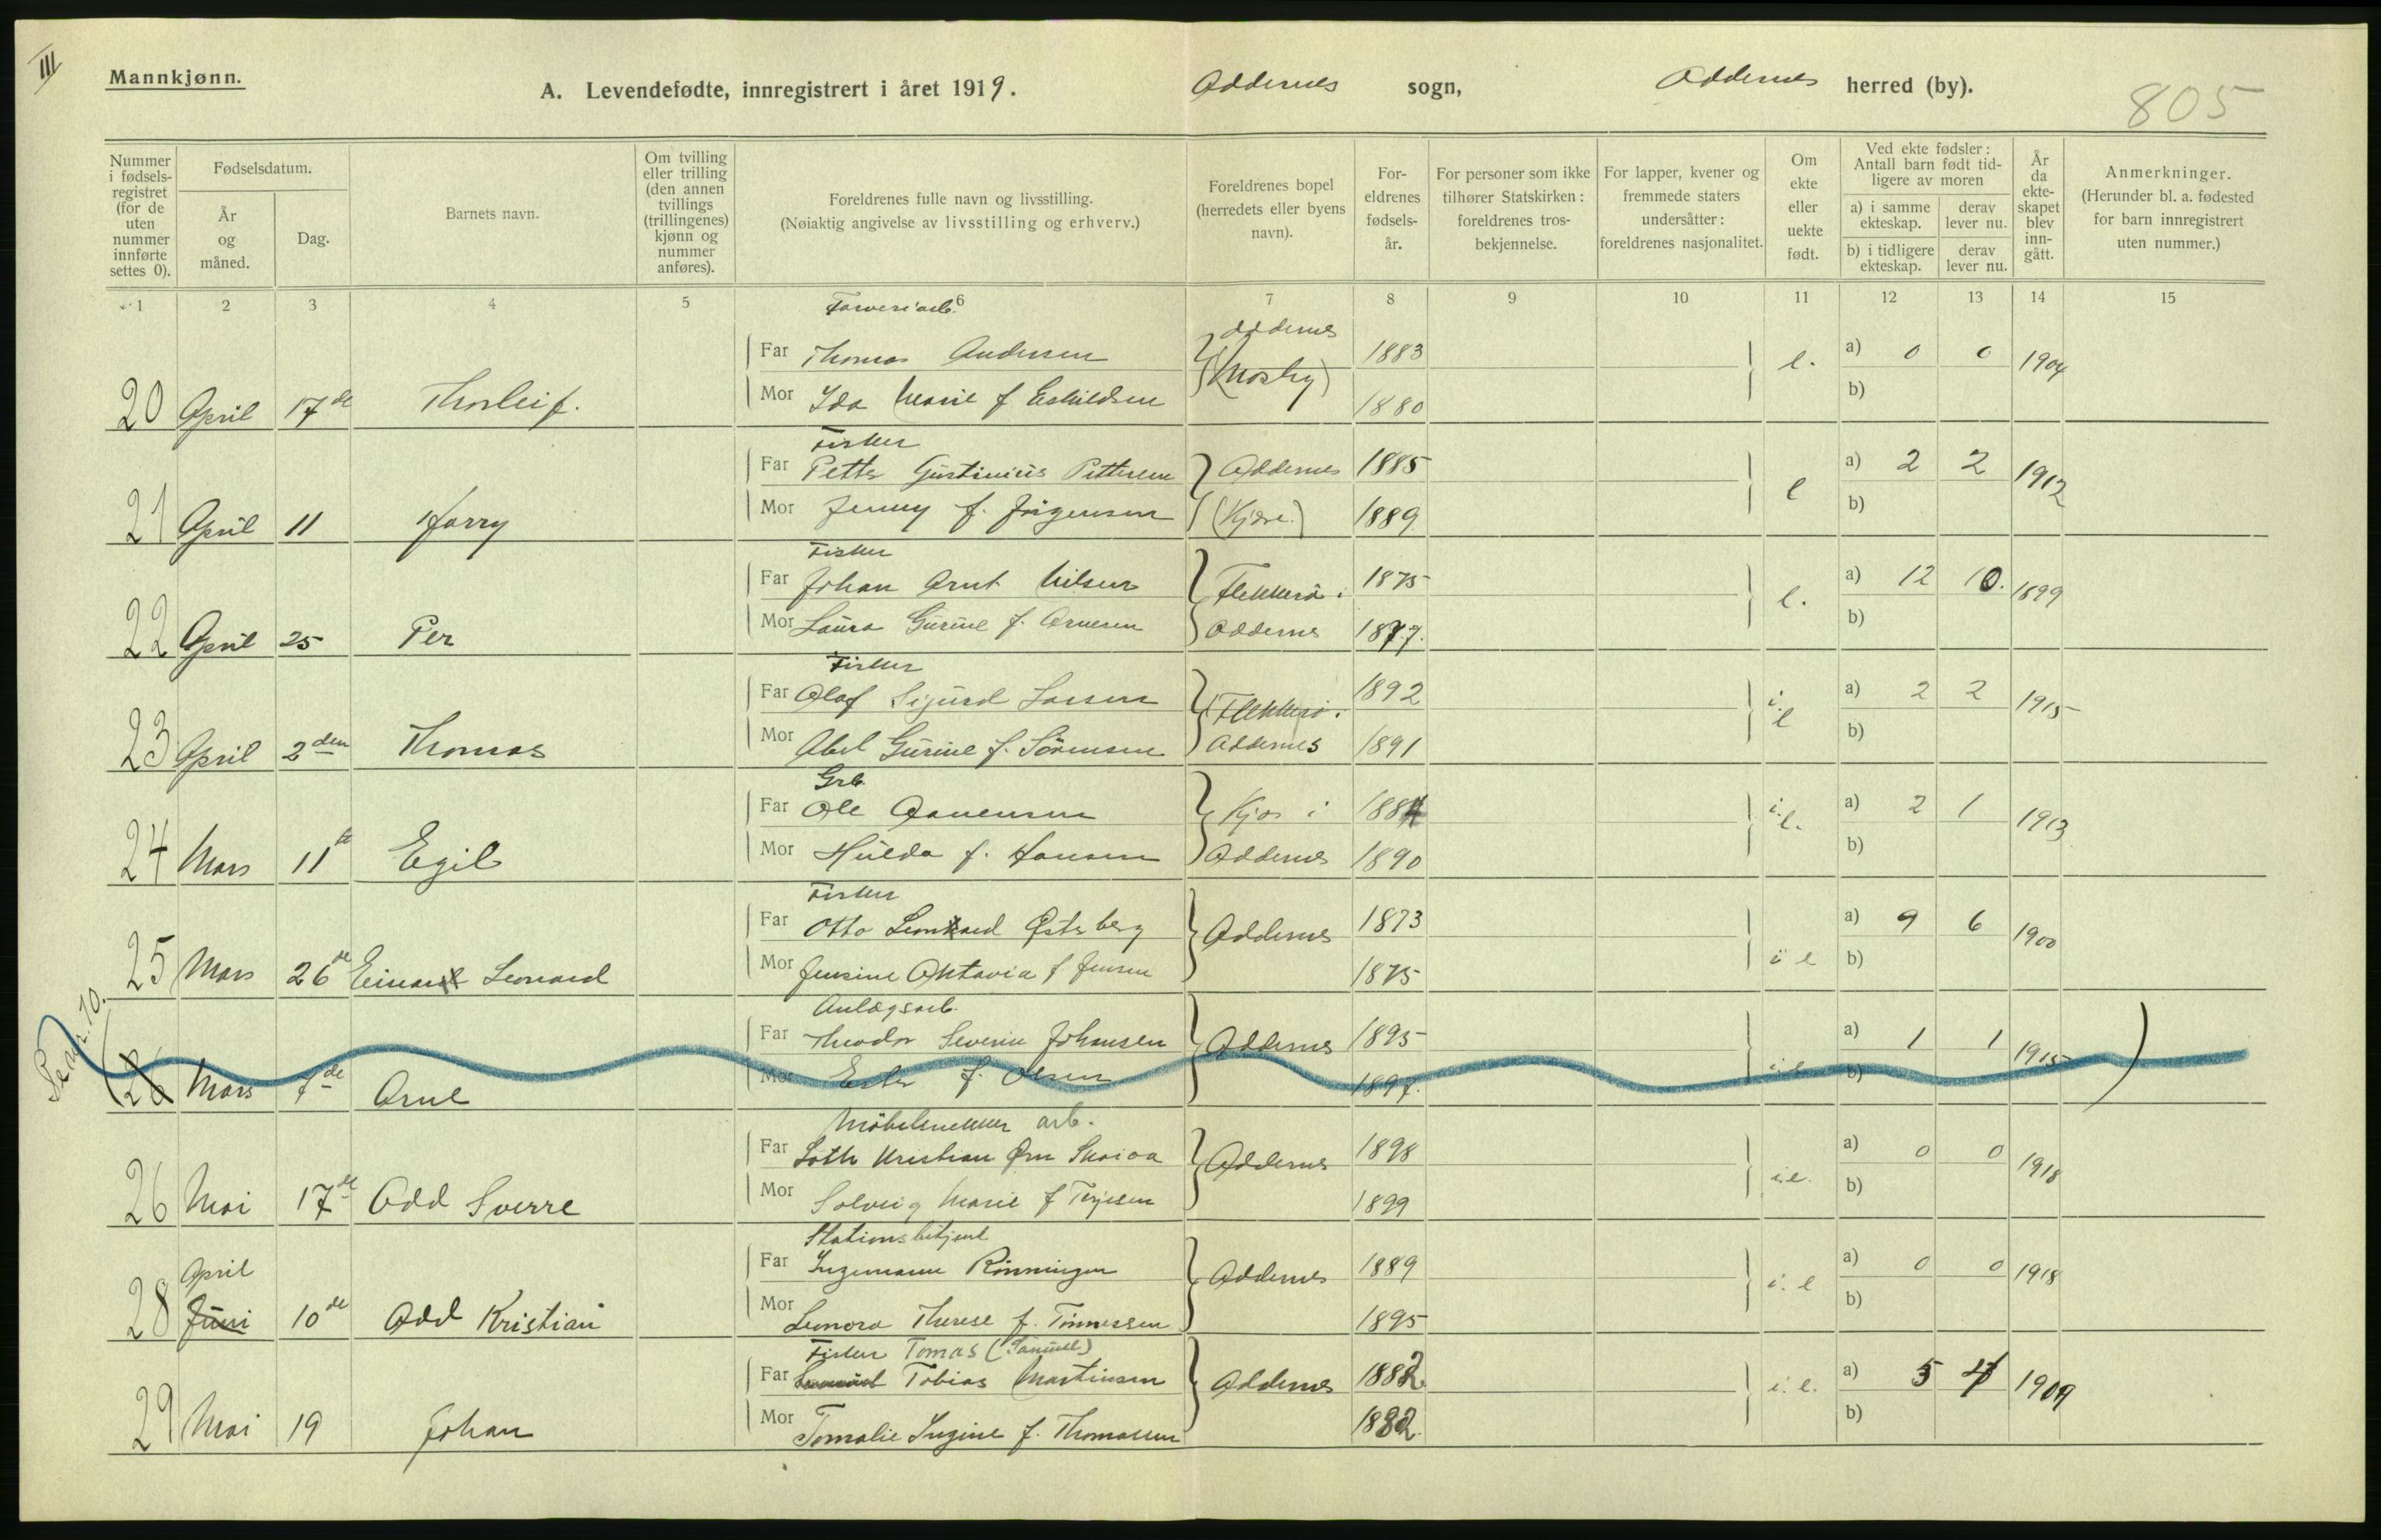 III
Mannkjønn.
A. Levendefødte, innregistrert i året 1919. Oddernes sogn, Oddernes herred (by).
805
Nummer i fødsels-registret (for de uten nummer innførte settes 0).
Fødselsdatum.
År og måned.
Dag.
Barnets navn.
Om tvilling eller trilling (den annen tvillings (trillingenes) kjønn og nummer anføres).
Foreldrenes fulle navn og livsstilling.
(Nøiaktig angivelse av livsstilling og erhverv.)
Foreldrenes bopel (herredets eller byens navn).
For-eldrenes fødsels-år.
For personer som ikke tilhører Statskirken: foreldrenes tros-bekjennelse.
For lapper, kvener og fremmede staters undersåtter: foreldrenes nasjonalitet.
Om ekte eller uekte født.
Ved ekte fødsler: Antall barn født tid-ligere av moren
a) i samme ekteskap.
derav lever nu.
b) i tidligere ekteskap.
derav lever nu.
År da ekte-skapet blev inn-gått.
Anmerkninger.
(Herunder bl. a. fødested for barn innregistrert uten nummer.)
1 2 3 4 5 6 7 8 9 10 11 12 13 14 15
Garveriarb. Oddernes
Far Thomas Andersen (Mosby) 1883 e. a) 0 0 1904
20 April 17de Thorleif. Mor Ida Marie f Eskildsen 1880 b)
Fisker
Far Petter Gustinius Pettersen Oddernes 1885 e a) 2 2 1912
21 April 11 Harry Mor Jenny f. Jørgensen (Kjære.) 1889 b)
Fisker
Far Johan Arnt Nilsen Flekkerö i 1875 e. a) 12 10. 1899
22 April 25 Per Mor Laura Gurine f. Arnesen Oddernes 1877. b)
Fisker
Far Olaf Sigurd Larsen Flekkerö i 1892 i. e a) 2 2 1915
23 April 2den Thomas Mor Abel Gurine f. Sörensen Oddernes 1891 b)
Grb
Far Ole Aanensen Kjos i 1884 i. e. a) 2 1 1913
24 Mars 11te Egil Mor Hulda f. Hansen Oddernes 1890 b)
Fisker
Far Otto Leonard Østerberg Oddernes 1873 a) 9 6 1900
25 Mars 26de Einar Leonard Mor Jensine Oktavia f Jensen 1875 i e b)
Se nr. 10.
Anlægsarb.
Far Theodor Severin Johansen Oddernes 1895 a) 1 1 1915
26 Mars 7de Arne Mor Ester f. Olsen 1897. i e b)
Möbelsnekker arb.
Far Loth Kristian Ørn Skaiaa Oddernes 1898 a) 0 0 1918
26 Mai 17de Odd Sverre Mor Solveig Marie f Terjesen 1899 i.e. b)
Stationsbetjent
April Far Ingemann Rönningen Oddernes 1889 i. e a) 0 0 1918
28 Juni 10de Odd Kristian Mor Leonora Therese f. Tönnessen 1895 b)
Fisker Tomas (Samuel)
Far Samuel Tobias Martinsen Oddernes 1882 i. e. a) 5 4 1909
29 Mai 19 Johan Mor Tomalie Ingine f. Thomassen 1882. b)